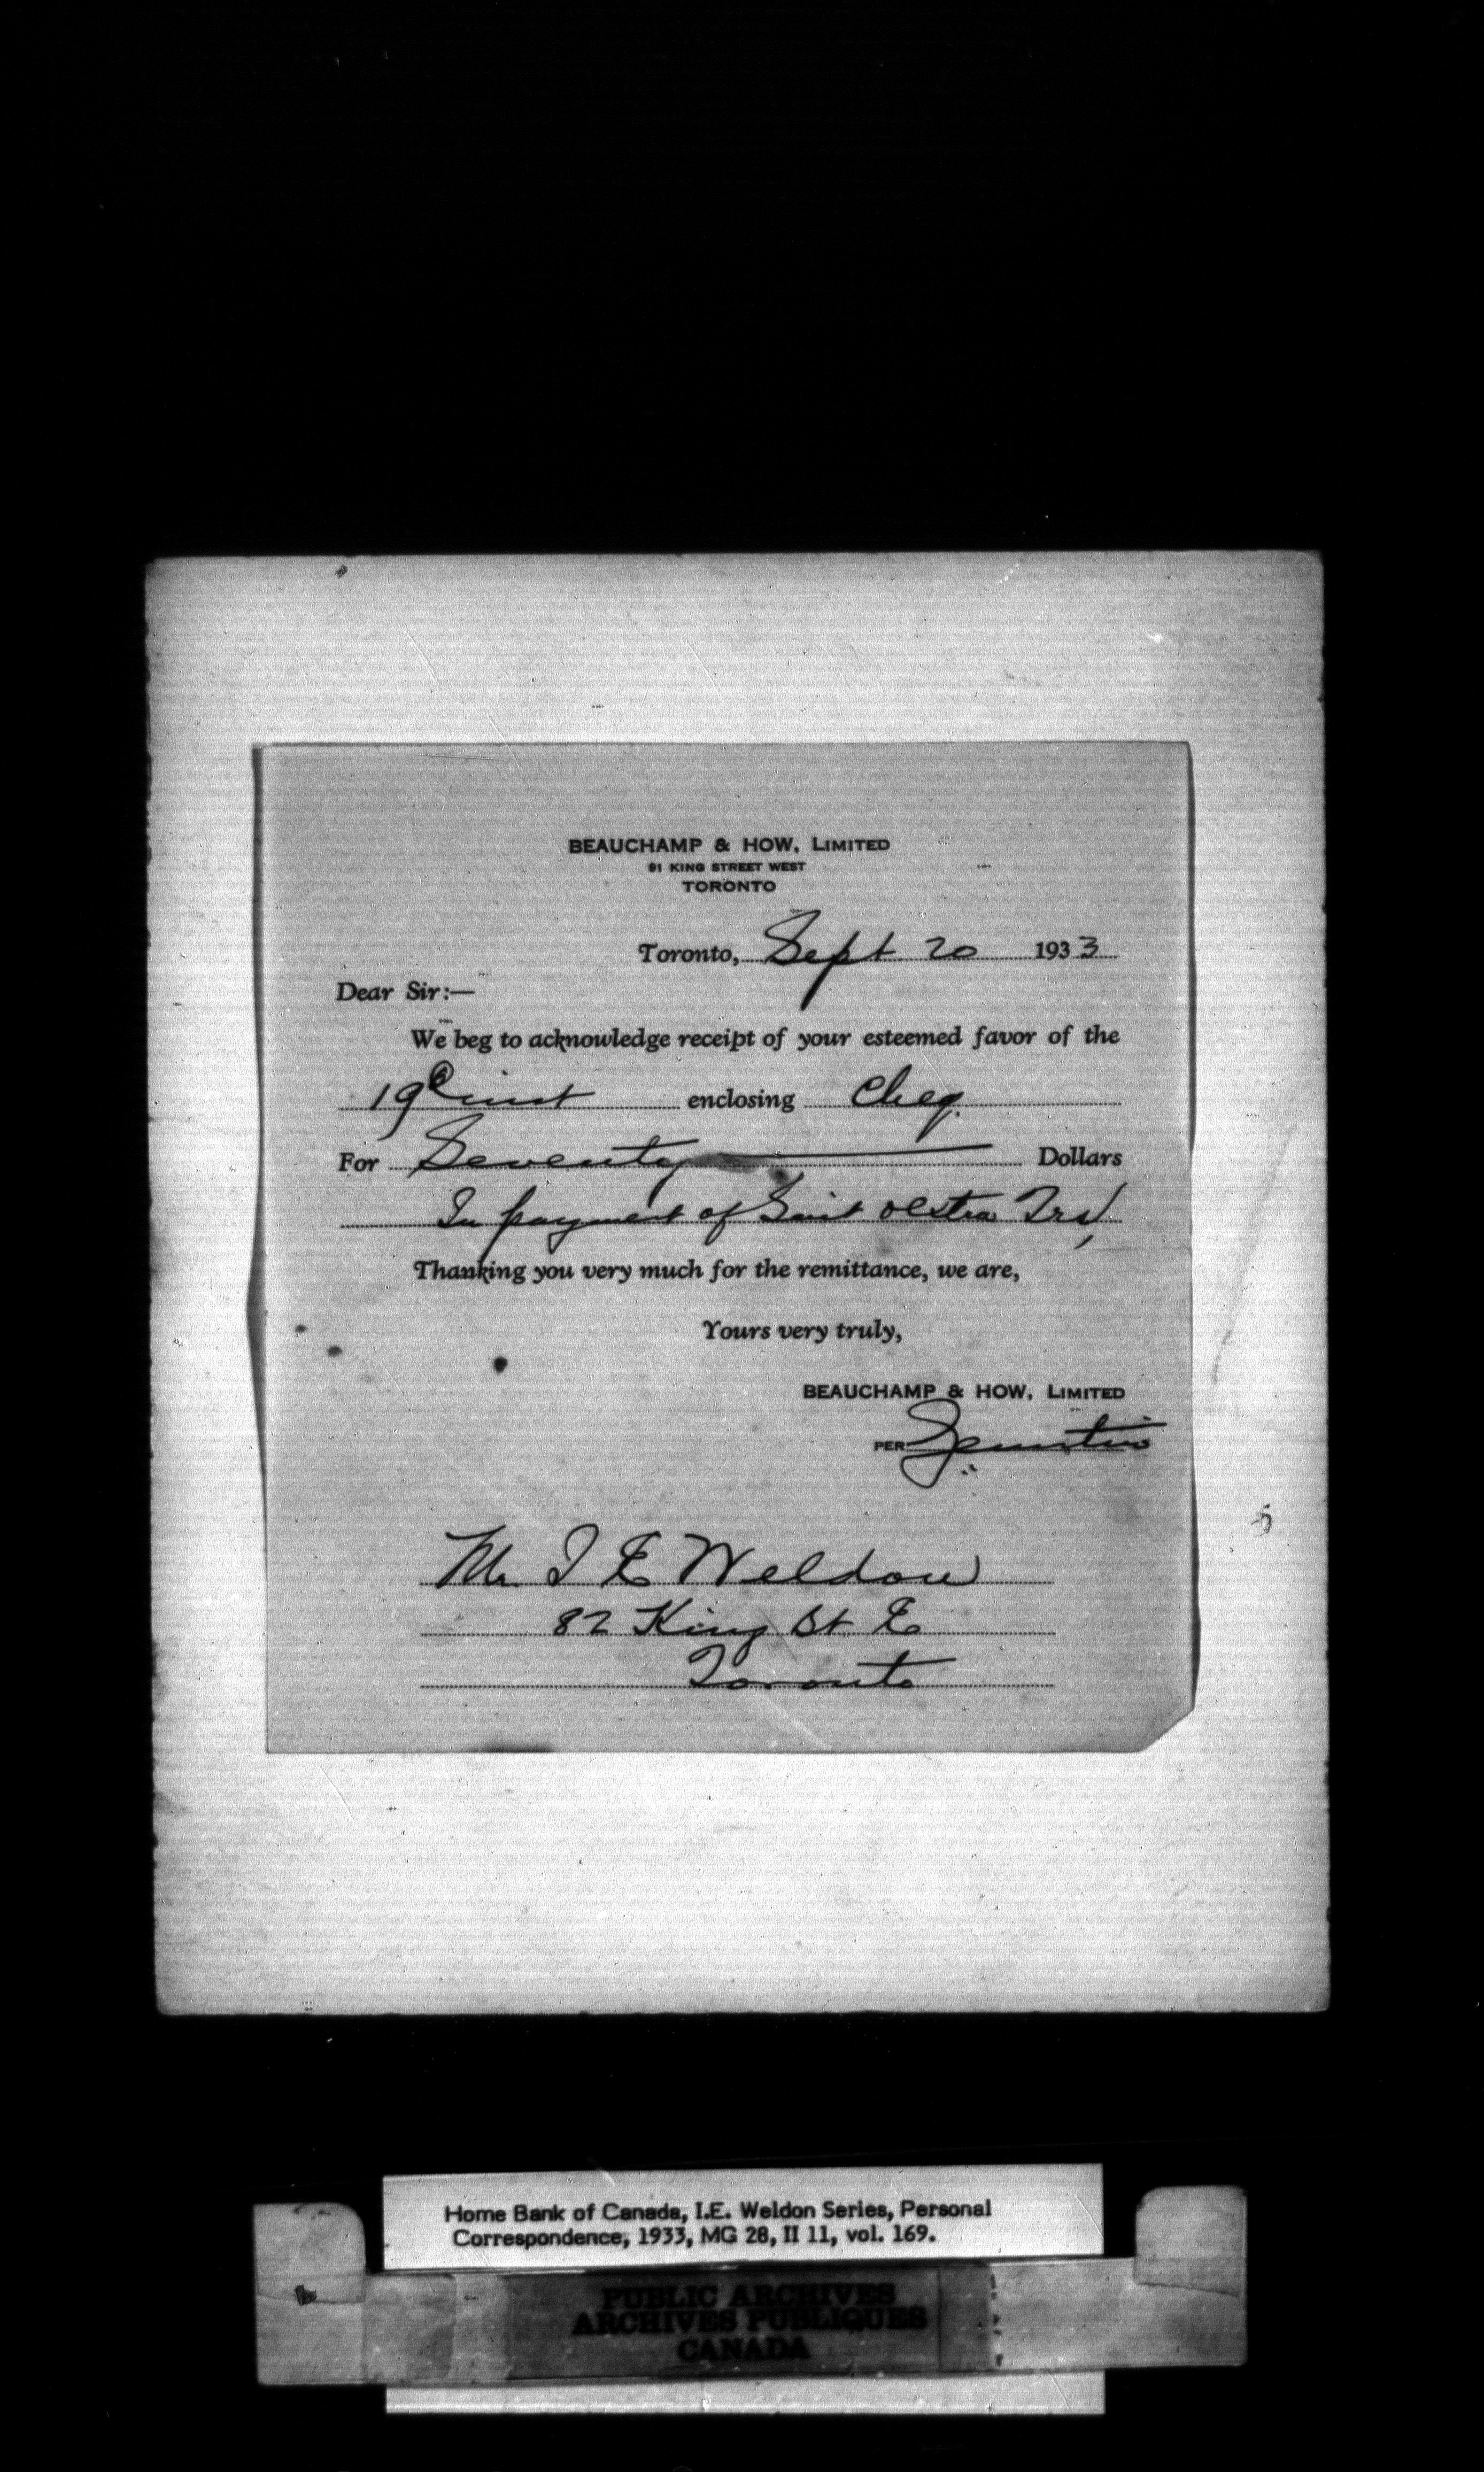 BEAUCHAMP & HOW, LIMITED
91 KING STREET WEST
TORONTO
Toronto, Sept 20 1933
Dear Sir:—
We beg to acknowledge receipt of your esteemed favor of the
19 inst enclosing Cheq.
For Seventy Dollars
In payment of Suit extra Trs/
Thanking you very much for the remittance, we are,
Yours very truly,
BEAUCHAMP & HOW, LIMITED
PER
Mr. I E Weldon
82 King St E
Toronto
Home Bank of Canada, I.E. Weldon Series, Personal
Correspondence, 1933, MG 28, II 11, vol. 169.
PUBLIC ARCHIVES
ARCHIVES PUBLIQUES
CANADA